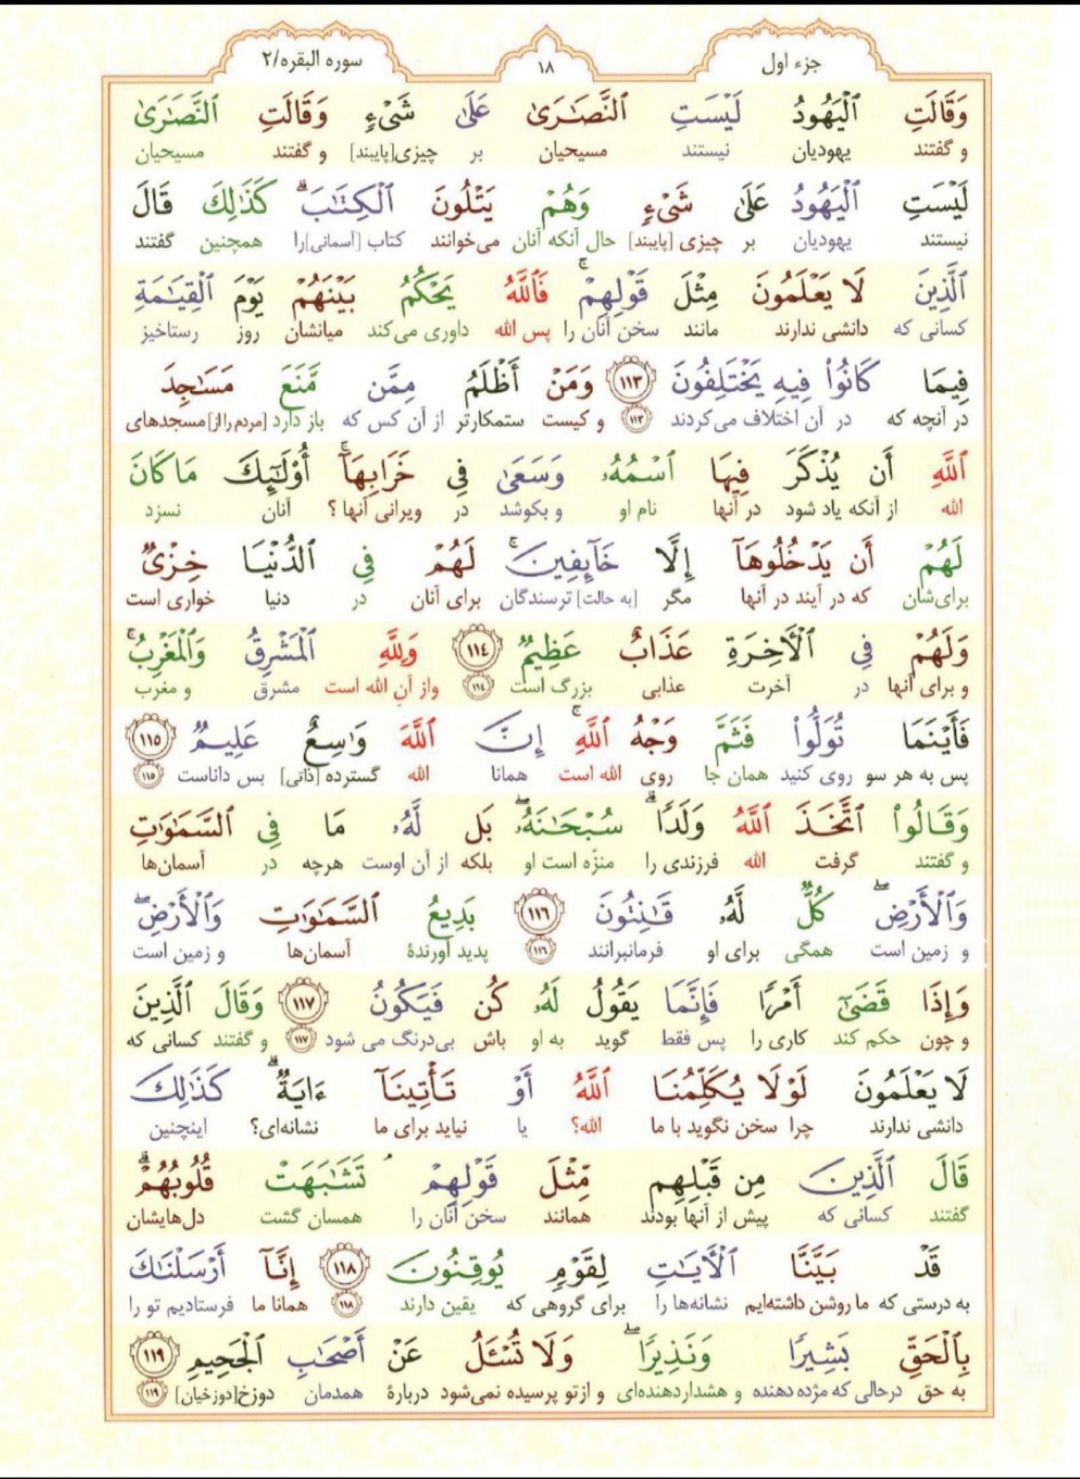 جزء اول
۱۸
سوره البقره/۲
وَقَالَتِ ٱلۡيَهُودُ لَيۡسَتِ ٱلنَّصَٰرَىٰ عَلَىٰ شَيۡءٖ وَقَالَتِ ٱلنَّصَٰرَىٰ
و گفتند یهودیان نیستند مسیحیان بر چیزی[پایبند] و گفتند مسیحیان
لَيۡسَتِ ٱلۡيَهُودُ عَلَىٰ شَيۡءٖ وَهُمۡ يَتۡلُونَ ٱلۡكِتَٰبَۗ كَذَٰلِكَ قَالَ
نیستند یهودیان بر چیزی [پایبند] حال آنکه آنان می‌خوانند کتاب [آسمانی]را همچنین گفتند
ٱلَّذِينَ لَا يَعۡلَمُونَ مِثۡلَ قَوۡلِهِمۡۚ فَٱللَّهُ يَحۡكُمُ بَيۡنَهُمۡ يَوۡمَ ٱلۡقِيَٰمَةِ
کسانی که دانشی ندارند مانند سخن آنان را پس الله داوری می‌کند میانشان روز رستاخیز
فِيمَا كَانُواْ فِيهِ يَخۡتَلِفُونَ ١١٣ وَمَنۡ أَظۡلَمُ مِمَّن مَّنَعَ مَسَٰجِدَ
در آنچه که در آن اختلاف می‌کردند ۱۱۳ و کیست ستمکارتر از آن کس که باز دارد [مردم را از] مسجدهای
ٱللَّهِ أَن يُذۡكَرَ فِيهَا ٱسۡمُهُۥ وَسَعَىٰ فِي خَرَابِهَآۚ أُوْلَٰٓئِكَ مَا كَانَ
الله از آنکه یاد شود در آنها نام او و بکوشد در ویرانی آنها ؟ آنان نسزد
لَهُمۡ أَن يَدۡخُلُوهَآ إِلَّا خَآئِفِينَۚ لَهُمۡ فِي ٱلدُّنۡيَا خِزۡيٞ
برای‌شان که در آیند در آنها مگر [به حالت] ترسندگان برای آنان در دنیا خواری است
وَلَهُمۡ فِي ٱلۡأٓخِرَةِ عَذَابٌ عَظِيمٞ ١١٤ وَلِلَّهِ ٱلۡمَشۡرِقُ وَٱلۡمَغۡرِبُۚ
و برای آنها در آخرت عذابی بزرگ است ۱۱۴ واز آن الله است مشرق و مغرب
فَأَيۡنَمَا تُوَلُّواْ فَثَمَّ وَجۡهُ ٱللَّهِۚ إِنَّ ٱللَّهَ وَٰسِعٌ عَلِيمٞ ١١٥
پس به هر سو روی کنید همان جا روی الله است همانا الله گسترده [ذاتی] بس داناست ۱۱۵
وَقَالُواْ ٱتَّخَذَ ٱللَّهُ وَلَدٗاۗ سُبۡحَٰنَهُۥۖ بَل لَّهُۥ مَا فِي ٱلسَّمَٰوَٰتِ
و گفتند گرفت الله فرزندی را منزّه است او بلکه از آن اوست هرچه در آسمان‌ها
وَٱلۡأَرۡضِۖ كُلّٞ لَّهُۥ قَٰنِتُونَ ١١٦ بَدِيعُ ٱلسَّمَٰوَٰتِ وَٱلۡأَرۡضِۖ
و زمین است همگی برای او فرمانبرانند ۱۱۶ پدید آورندهٔ آسمان‌ها و زمین است
وَإِذَا قَضَىٰٓ أَمۡرٗا فَإِنَّمَا يَقُولُ لَهُۥ كُن فَيَكُونُ ١١٧ وَقَالَ ٱلَّذِينَ
و چون حکم کند کاری را پس فقط گوید به او باش بی‌درنگ می شود ۱۱۷ و گفتند کسانی که
لَا يَعۡلَمُونَ لَوۡلَا يُكَلِّمُنَا ٱللَّهُ أَوۡ تَأۡتِينَآ ءَايَةٞۗ كَذَٰلِكَ
دانشی ندارند چرا سخن نگوید با ما الله؟ یا نیاید برای ما نشانه‌ای؟ اینچنین
قَالَ ٱلَّذِينَ مِن قَبۡلِهِم مِّثۡلَ قَوۡلِهِمۡۘ تَشَٰبَهَتۡ قُلُوبُهُمۡۗ
گفتند کسانی که پیش از آنها بودند همانند سخن آنان را همسان گشت دل‌هایشان
قَدۡ بَيَّنَّا ٱلۡأٓيَٰتِ لِقَوۡمٖ يُوقِنُونَ ١١٨ إِنَّآ أَرۡسَلۡنَٰكَ
به درستی که ما روشن داشته‌ایم نشانه‌ها را برای گروهی که یقین دارند ۱۱۸ همانا ما فرستادیم تو را
بِٱلۡحَقِّ بَشِيرٗا وَنَذِيرٗاۖ وَلَا تُسۡـَٔلُ عَنۡ أَصۡحَٰبِ ٱلۡجَحِيمِ ١١٩
به حق درحالی که مژده دهنده و هشداردهنده‌ای و ازتو پرسیده نمی‌شود دربارهٔ همدمان دوزخ[دوزخیان] ۱۱۹